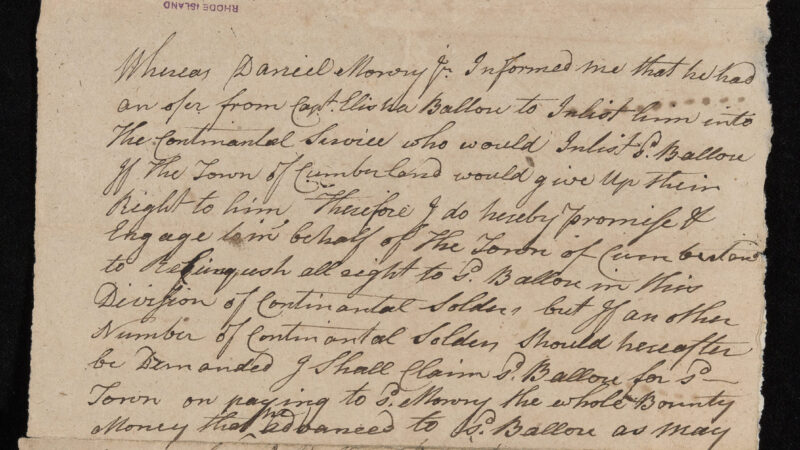 RHODE ISLAND
Whereas Daniel Mowry Jr. Informed me that he had
an ofer from Capt. Elisha Ballou to Inlist him into
the Continantal Service who would Inlist Sd. Ballou
If the Town of Cumberland would give Up their
Right to him Therefore I do hereby Promise &
Engage in behalf of the Town of Cumberland
to Relinquish all right to Sd. Ballou in this
Division of Continantal Solders but If an other
Number of Continantal Solders Should hereafter
be Demanded I Shall Claim Sd. Ballou for Sd.
Town on paying to Sd. Mowry the whole Bounty
Money that advanced to Sd. Ballou as may